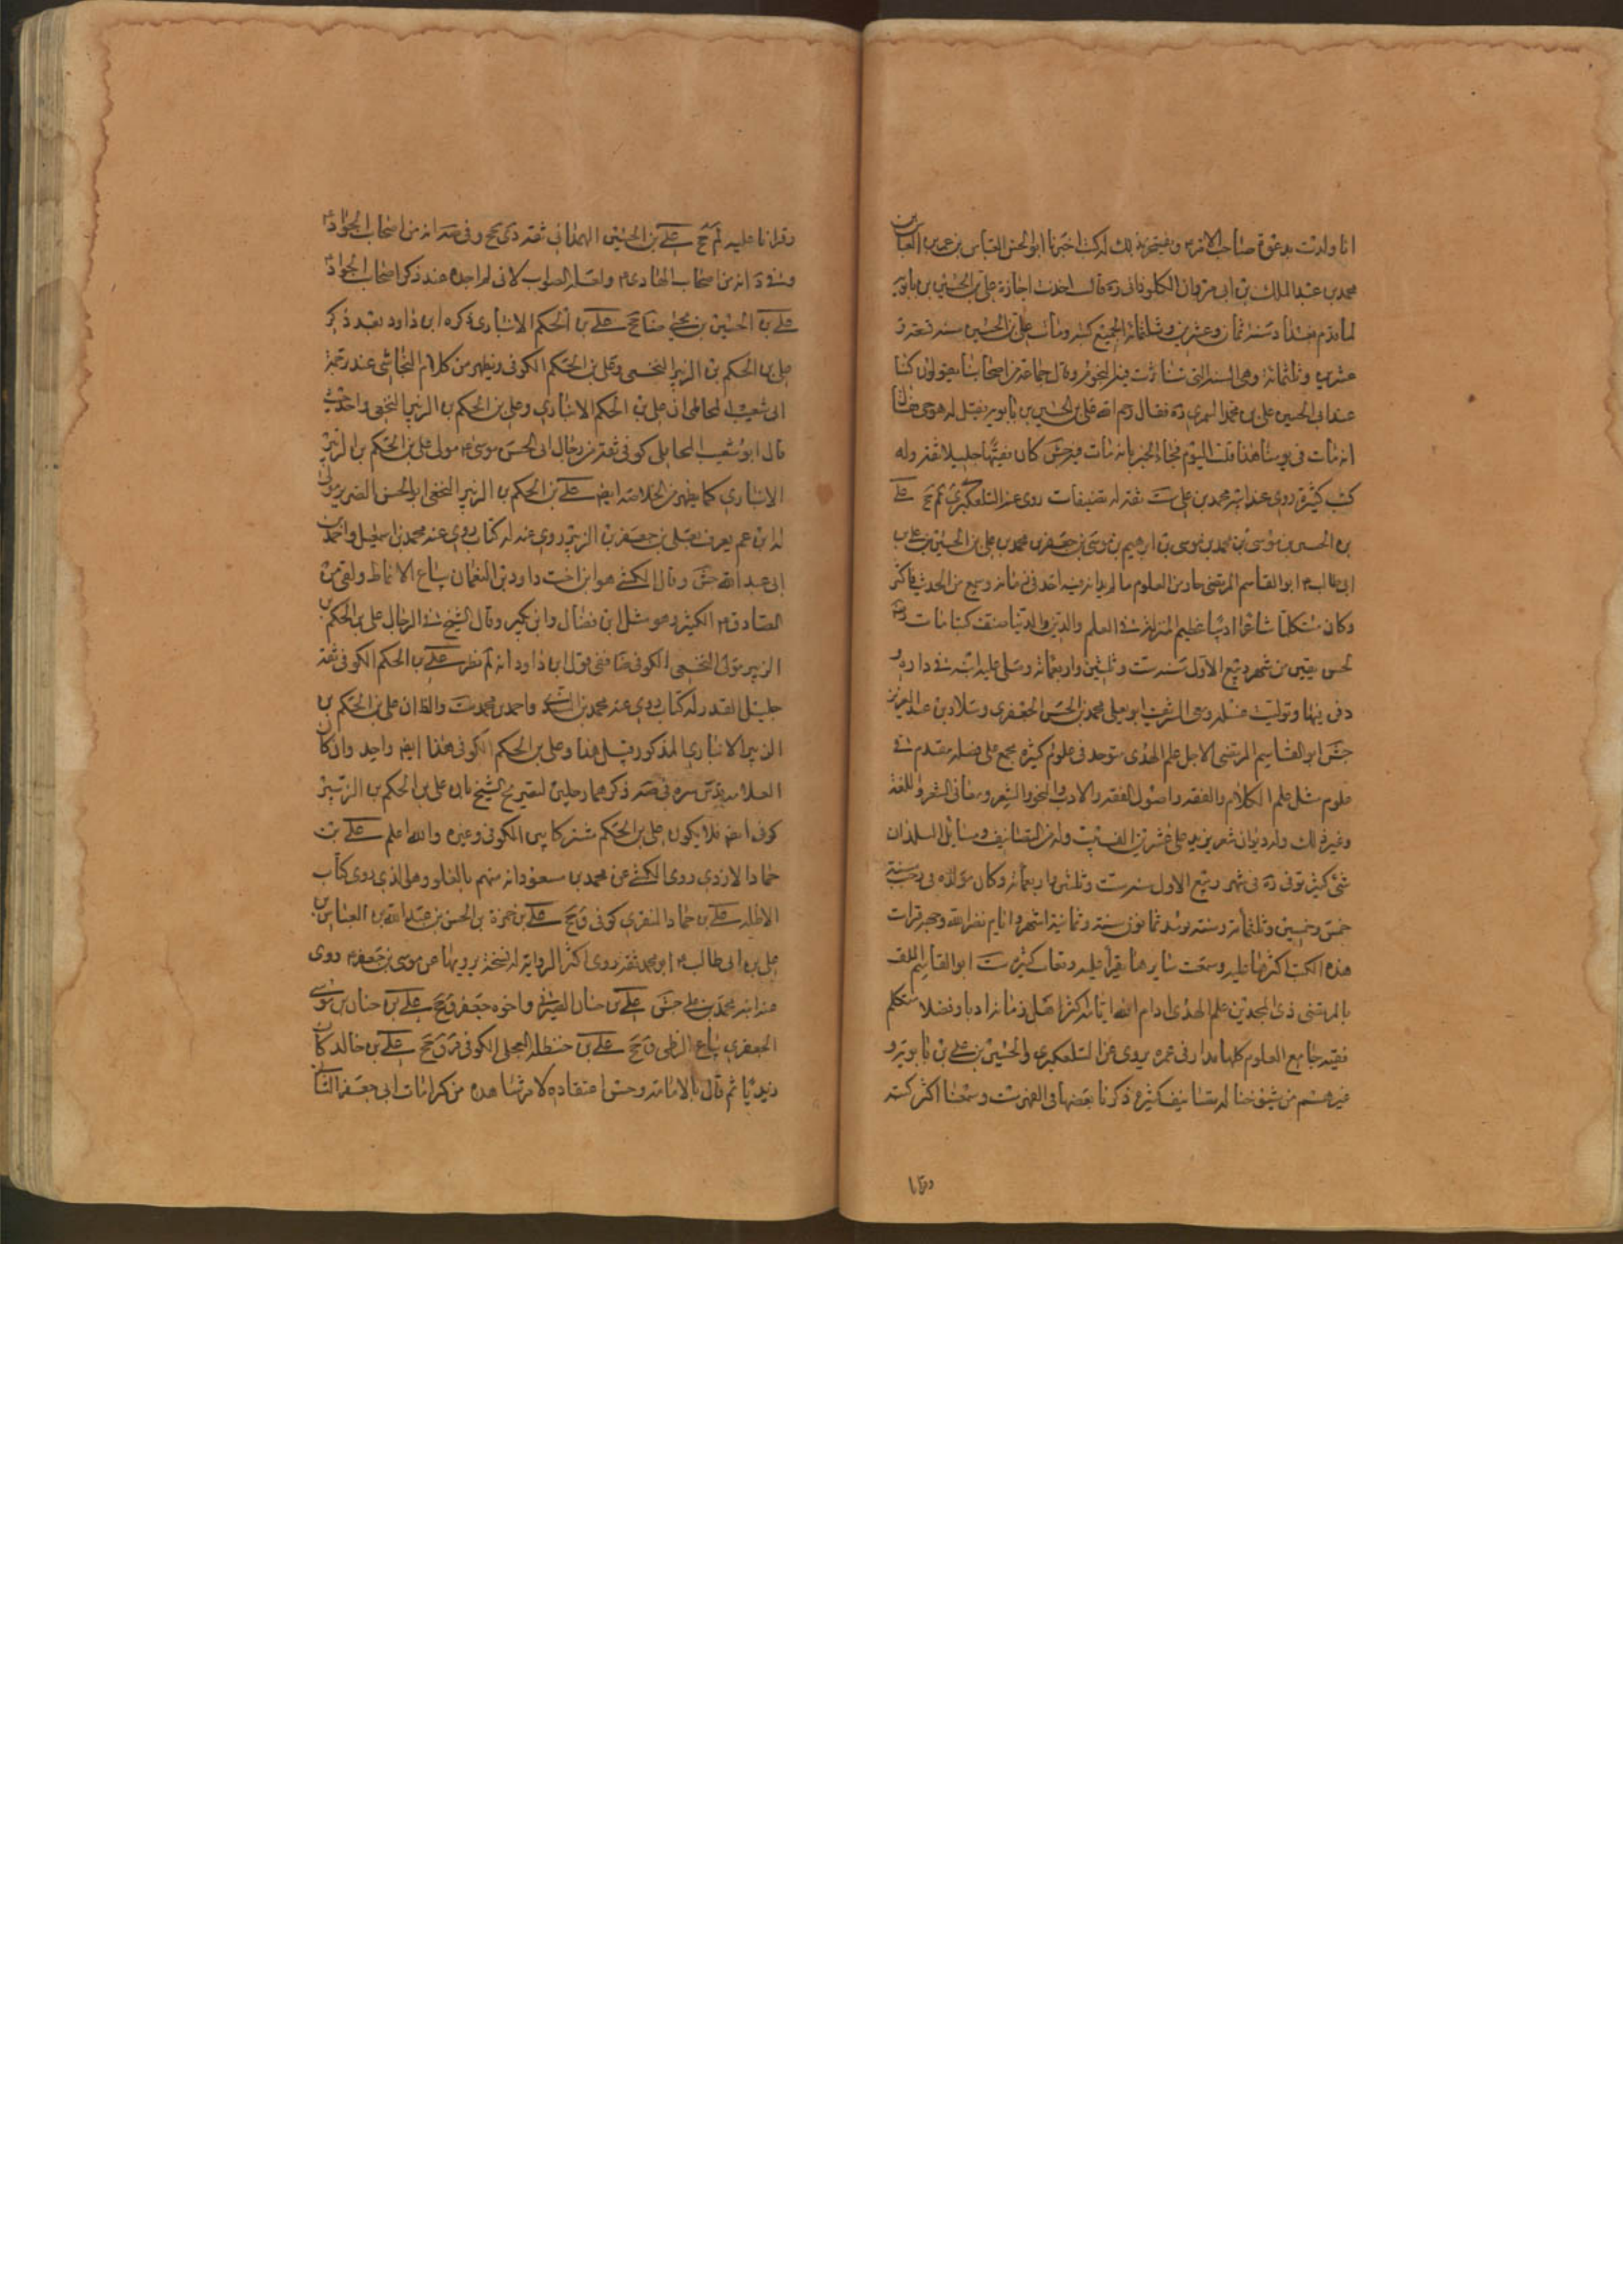 انا ولدت بدعوة صاحب الامر م ويفتخر بذلك له كتب اخبرنا ابو الحسن العباس بن عمر بن العباس بن
محمد بن عبد الملك بن ابى مروان الكلوذانى ره قال اخذت اجازة على بن الحسين بن بابويه
لما قدم بغداد سنة ثمان وعشرين وثلثمائة بجميع كتبه ومات على بن الحسين سنة تسع و
عشرين وثلثمائة وهى السنة التى تناثرت فيها النجوم وقال جماعة من اصحابنا يقولون كنا
عند ابى الحسن على بن محمد السمرى ره فقال رحم الله على بن الحسين بن بابويه فقيل له هو حى فقال
انه مات فى يومنا هذا فكتب اليوم فجاء الخبر بانه مات فيه جش كان فقيها جليلا ثقة وله
كتب كثيرة روى عنه ابنه محمد بن على ست ثقة له تصنيفات روى عنه التلعكبرى لم جخ على
بن الحسين بن موسى بن محمد بن موسى بن ابرهيم بن موسى بن جعفر بن محمد بن على بن الحسين بن على بن
ابى طالب م ابو القاسم المرتضى حاز من العلوم ما لم يدانه فيه احد فى زمانه وسمع من الحديث فاكثر
وكان متكلما شاعرا اديبا عظيم المنزلة فى العلم والدين والدنيا صنف كتبا مات رضه
لخمس بقين من شهر ربيع الاول سنة ست وثلثين واربعمائة وصلى عليه ابنه فى داره و
دفن فيها وتوليت غسله ومعى الشريف ابو يعلى محمد بن الحسن الجعفرى وسلار بن عبد العزيز
جش ابو القاسم المرتضى الاجل علم الهدى متوحد فى علوم كثيرة مجمع على فضله مقدم فى
علوم مثل علم الكلام والفقه واصول الفقه والادب والنحو والشعر ومعانى الشعر واللغة
وغير ذلك وله ديوان شعر يزيد على عشرين الف بيت وله من التصانيف ومسايل البلدان
شئ كثير توفى ره فى شهر ربيع الاول سنة ست وثلثين واربعمائة وكان مولده فى رجب سنة
خمس وخمسين وثلثمائة وسنه يومئذ ثمانون سنة وثمانية اشهر وايام نضر الله وجهه قرات
هذه الكتب اكثرها عليه وسمعت سايرها يقرأ عليه دفعات كثيرة ست ابو القاسم الملقب
بالمرتضى ذى المجدين علم الهدى ادام الله ايامه اكثر اهل زمانه ادبا وفضلا متكلم
فقيه جامع العلوم كلها مد الله فى عمره يروى عن التلعكبرى والحسين بن على بن بابويه و
غيرهم من شيوخنا له تصانيف كثيرة ذكرنا بعضها فى الفهرست وسمعنا اكثر كتبه
وقرانا
وقرانا عليه لم جخ على بن الحسين الهمدانى ثقة دى جخ وفى صه انه من اصحاب الجواد م
وفى د انه من اصحاب الهادى م ولعله الصواب لانى لم اجده عند ذكر اصحاب الجواد م
على بن الحسين بن يحيى ضا جخ على بن الحكم الانبارى ذكره ابن داود بعد ذكر
على بن الحكم بن الزبير النخعى وعلى بن الحكم الكوفى ويظهر من كلام النجاشى عند ترجمة
ابى شعيب المحاملى ان على بن الحكم الانبارى وعلى بن الحكم بن الزبير النخعى واحد حيث
قال ابو شعيب المحاملى كوفى ثقة من رجال ابى الحسن موسى م مولى على بن الحكم بن الزبير
الانبارى كما يظهر من الخلاصة ايضا على بن الحكم بن الزبير النخعى ابو الحسن الضرير مولى
له ابن عم يعرف بعلى بن جعفر بن الزبير روى عنه له كتاب روى عنه محمد بن اسمعيل واحمد بن
ابى عبد الله جش وقال الكشى هو ابن اخت داود بن النعمان بياع الانماط ولقى من
الصادق م الكثير وهو مثل ابن فضال وابن بكير وقال الشيخ فى الرجال على بن الحكم بن
الزبير مولى النخعى الكوفى ضا ففى قول ابن داود انه لم نظر على بن الحكم الكوفى ثقة
جليل القدر له كتاب روى عنه محمد بن السندى واحمد بن محمد ست والظ ان على بن الحكم بن
الزبير الانبارى المذكور قبيل هذا وعلى بن الحكم الكوفى هذا ايضا واحد وان كان
العلامة قدس سره فى صه ذكرهما رجلين لتصريح الشيخ بان على بن الحكم بن الزبير
كوفى ايضا فلا يكون على بن الحكم مشتركا بين الكوفى وغيره والله اعلم على بن
حماد الازدى روى الكشى عن محمد بن مسعود انه متهم بالغلو وهو الذى روى كتاب
الاظلة على بن حماد المنقرى كوفى ق جخ على بن حمزة بن الحسن بن عبيد الله بن العباس بن
على بن ابى طالب م ابو محمد ثقة روى اكثر الرواية له نسخة يرويها عن موسى بن جعفر م روى
عنه ابنه محمد بن على جش على بن حنان الصيرفى واخوه جعفر ق جخ على بن حنان بن موسى
الجعفرى بياع الزطى ق جخ على بن حنظلة العجلى الكوفى قر ق جخ على بن خالد كان
زيديا ثم قال بالامامة وحسن اعتقاده لامر شاهده من كرامات ابى جعفر الثانى م